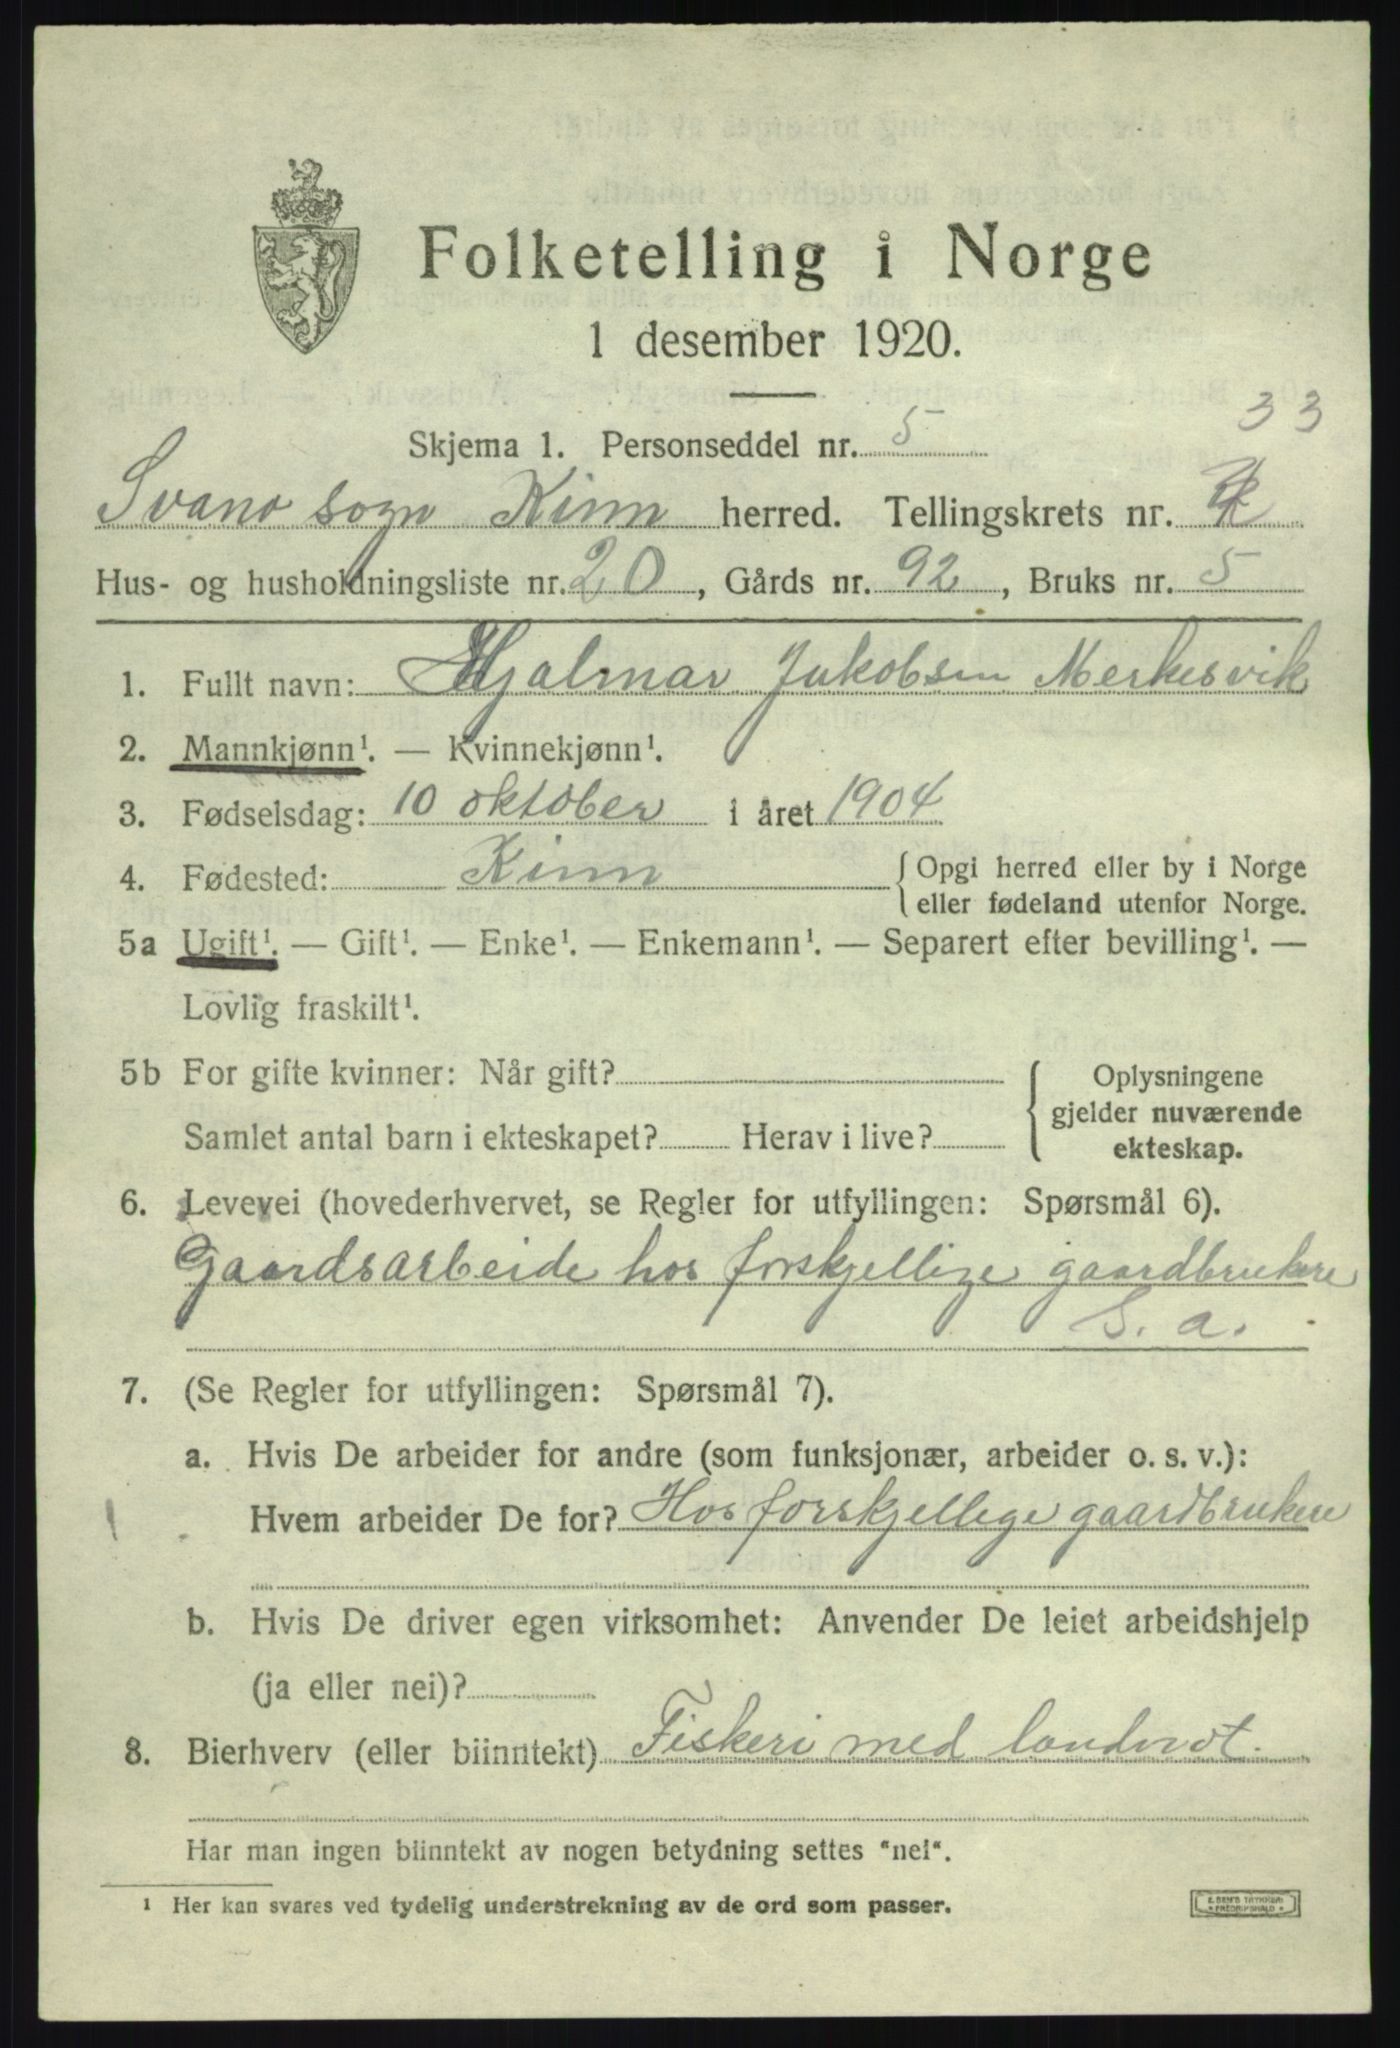 Folketelling i Norge
1 desember 1920.
33
Skjema 1. Personseddel nr. 5
Svanø sogn Kinn herred. Tellingskrets nr.
Hus- og husholdningsliste nr. 20, Gårds nr. 92, Bruks nr. 5
1. Fullt navn: Hjalmar Jakobsen Merkesvik
2. Mannkjønn¹. — Kvinnekjønn¹.
3. Fødselsdag: 10 oktober i året 1904
4. Fødested: Kinn { Opgi herred eller by i Norge
eller fødeland utenfor Norge.
5a Ugift¹. — Gift¹. — Enke¹. — Enkemann¹. — Separert efter bevilling¹. —
Lovlig fraskilt¹.
5b For gifte kvinner: Når gift?
Samlet antal barn i ekteskapet? Herav i live?
Oplysningene
gjelder nuværende
ekteskap.
6. Levevei (hovederhvervet, se Regler for utfyllingen: Spørsmål 6).
Gaardsarbeide hos forskjellige gaardbrukere
S. a.
7. (Se Regler for utfyllingen: Spørsmål 7).
a. Hvis De arbeider for andre (som funksjonær, arbeider o. s. v.):
Hvem arbeider De for? Hos forskjellege gaardbrukere
b. Hvis De driver egen virksomhet: Anvender De leiet arbeidshjelp
(ja eller nei)?
8. Bierhverv (eller biinntekt) Fiskeri med landnot.
Har man ingen biinntekt av nogen betydning settes "nei".
¹ Her kan svares ved tydelig understrekning av de ord som passer.
E. SEM'S TRYKKERI
FREDRIKSHALD